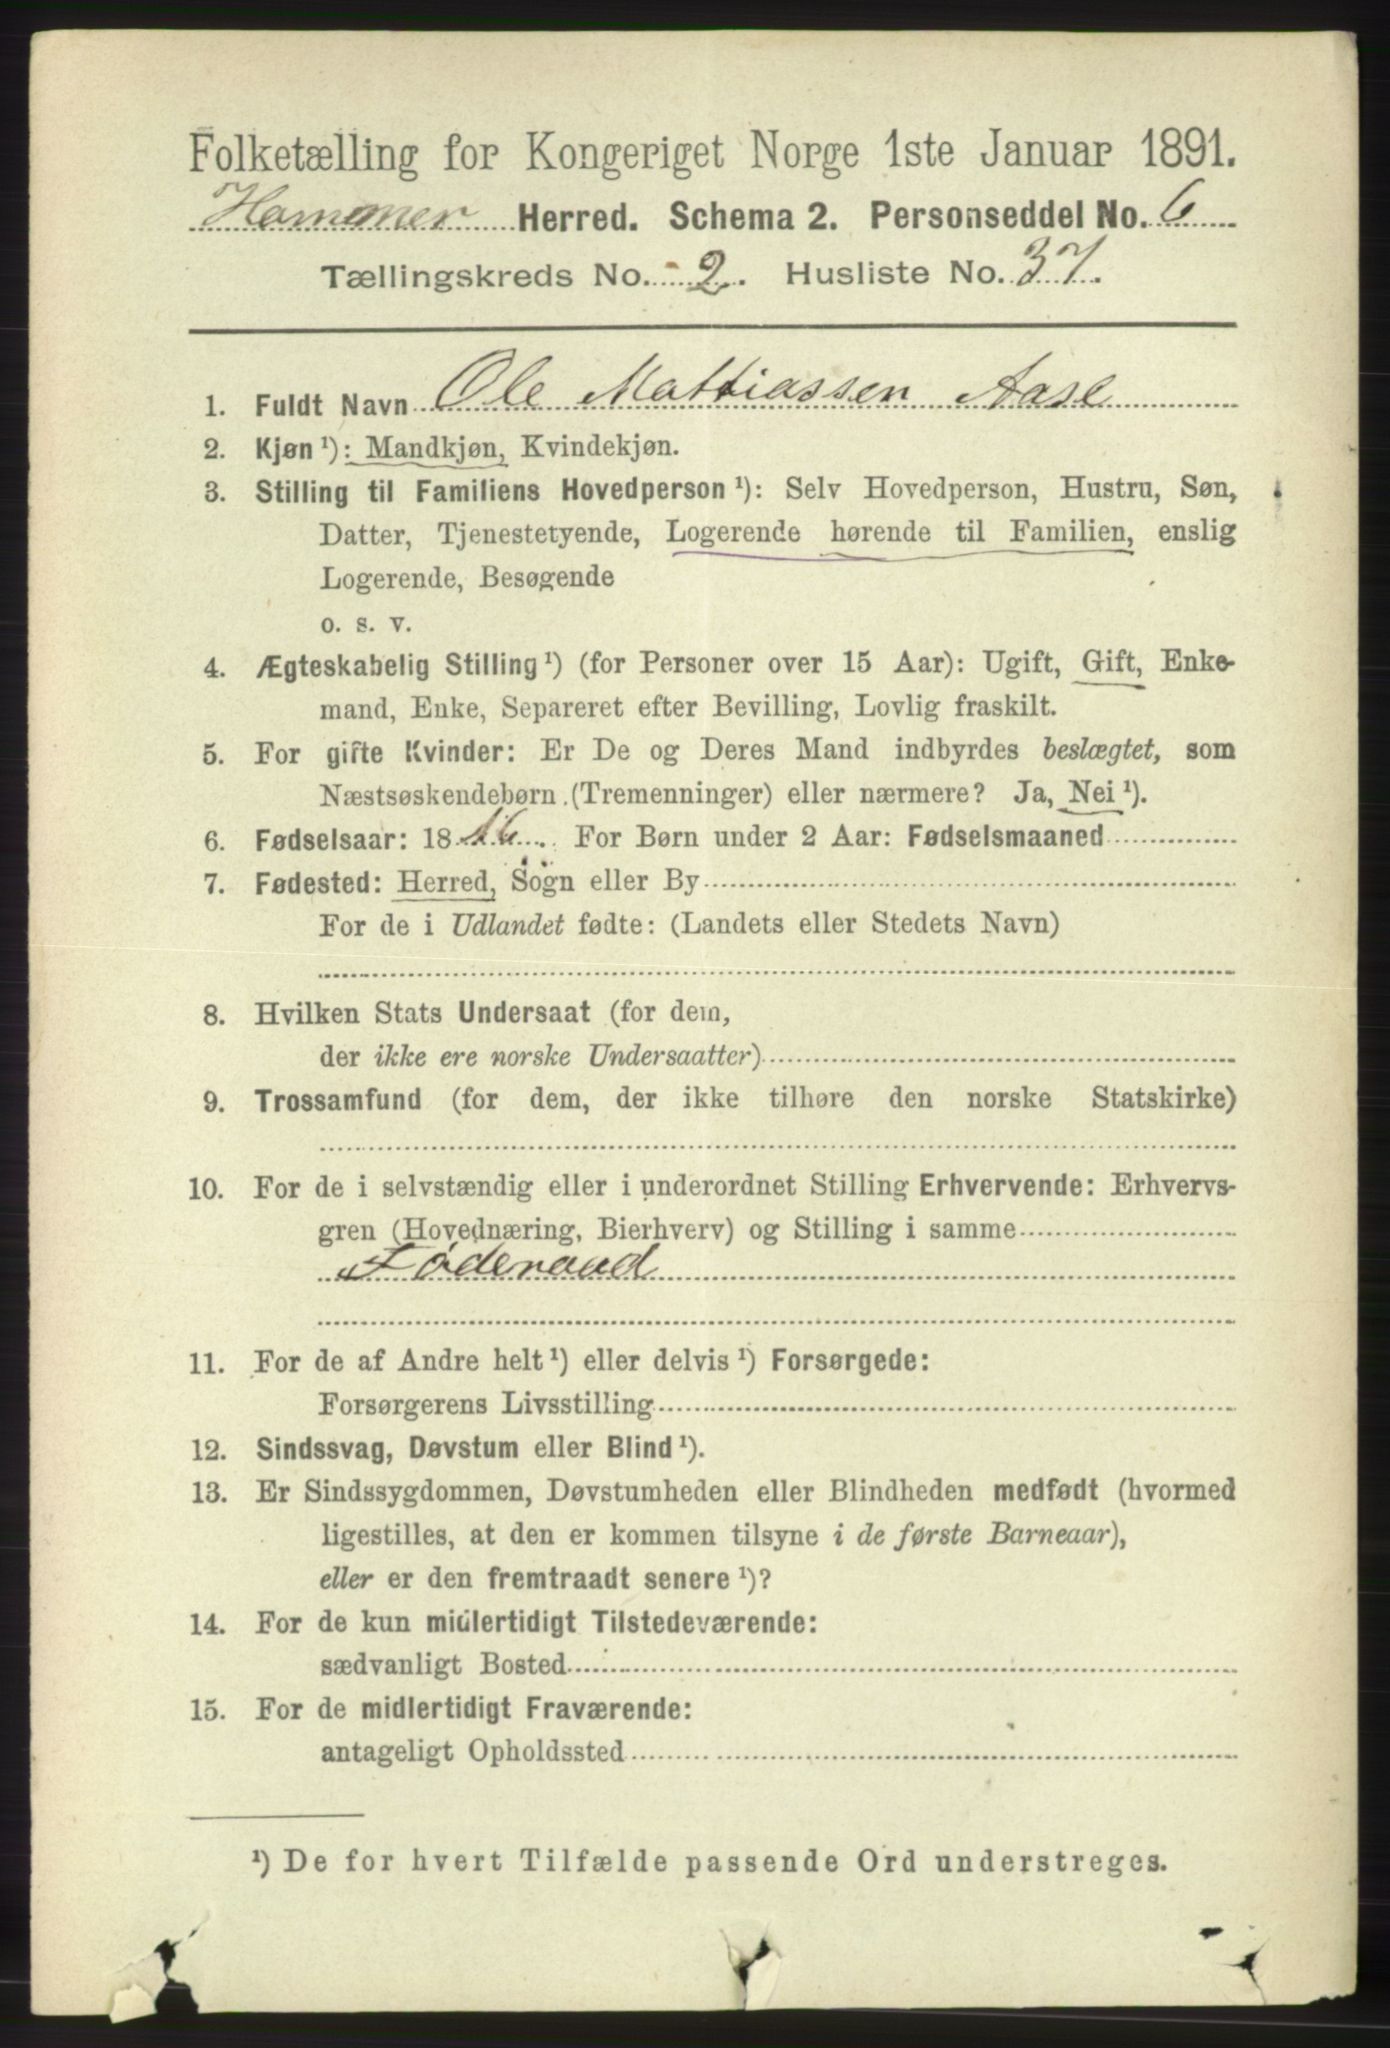 Folketælling for Kongeriget Norge 1ste Januar 1891.
Hammer Herred. Schema 2. Personseddel No. 6
Tællingskreds No. 2. Husliste No. 37.
1. Fuldt Navn Ole Mattiassen Aase
2. Kjøn ¹): Mandkjøn, Kvindekjøn.
3. Stilling til Familiens Hovedperson ¹): Selv Hovedperson, Hustru, Søn,
Datter, Tjenestetyende, Logerende hørende til Familien, enslig
Logerende, Besøgende
o. s. v.
4. Ægteskabelig Stilling ¹) (for Personer over 15 Aar): Ugift, Gift, Enke-
mand, Enke, Separeret efter Bevilling, Lovlig fraskilt.
5. For gifte Kvinder: Er De og Deres Mand indbyrdes beslægtet, som
Næstsøskendebørn (Tremenninger) eller nærmere? Ja, Nei ¹).
6. Fødselsaar: 1816. For Børn under 2 Aar: Fødselsmaaned
7. Fødested: Herred, Sogn eller By
For de i Udlandet fødte: (Landets eller Stedets Navn)
8. Hvilken Stats Undersaat (for dem,
der ikke ere norske Undersaatter)
9. Trossamfund (for dem, der ikke tilhøre den norske Statskirke)
10. For de i selvstændig eller i underordnet Stilling Erhvervende: Erhvervs-
gren (Hovednæring, Bierhverv) og Stilling i samme
Føderaad
11. For de af Andre helt ¹) eller delvis ¹) Forsørgede:
Forsørgerens Livsstilling
12. Sindssvag, Døvstum eller Blind ¹).
13. Er Sindssygdommen, Døvstumheden eller Blindheden medfødt (hvormed
ligestilles, at den er kommen tilsyne i de første Barneaar),
eller er den fremtraadt senere ¹)?
14. For de kun midlertidigt Tilstedeværende:
sædvanligt Bosted
15. For de midlertidigt Fraværende:
antageligt Opholdssted
¹) De for hvert Tilfælde passende Ord understreges.